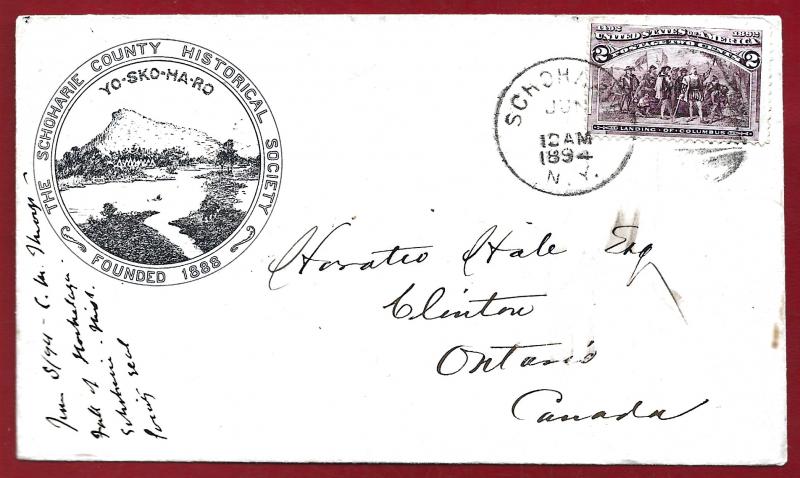 THE SCHOHARIE COUNTY HISTORICAL SOCIETY
YO-SKO-HA-RO
FOUNDED 1888
1492 1892
UNITED STATES OF AMERICA
POSTAGE TWO CENTS
2 2
LANDING OF COLUMBUS
SCHOHARIE
JUN
12AM
1894
N.Y.
Horatio Hale Esq
Clinton
Ontario
Canada
June 8/94 - C. M.
Fall of Hochelaga.
Schoharie Hist.
Society seal